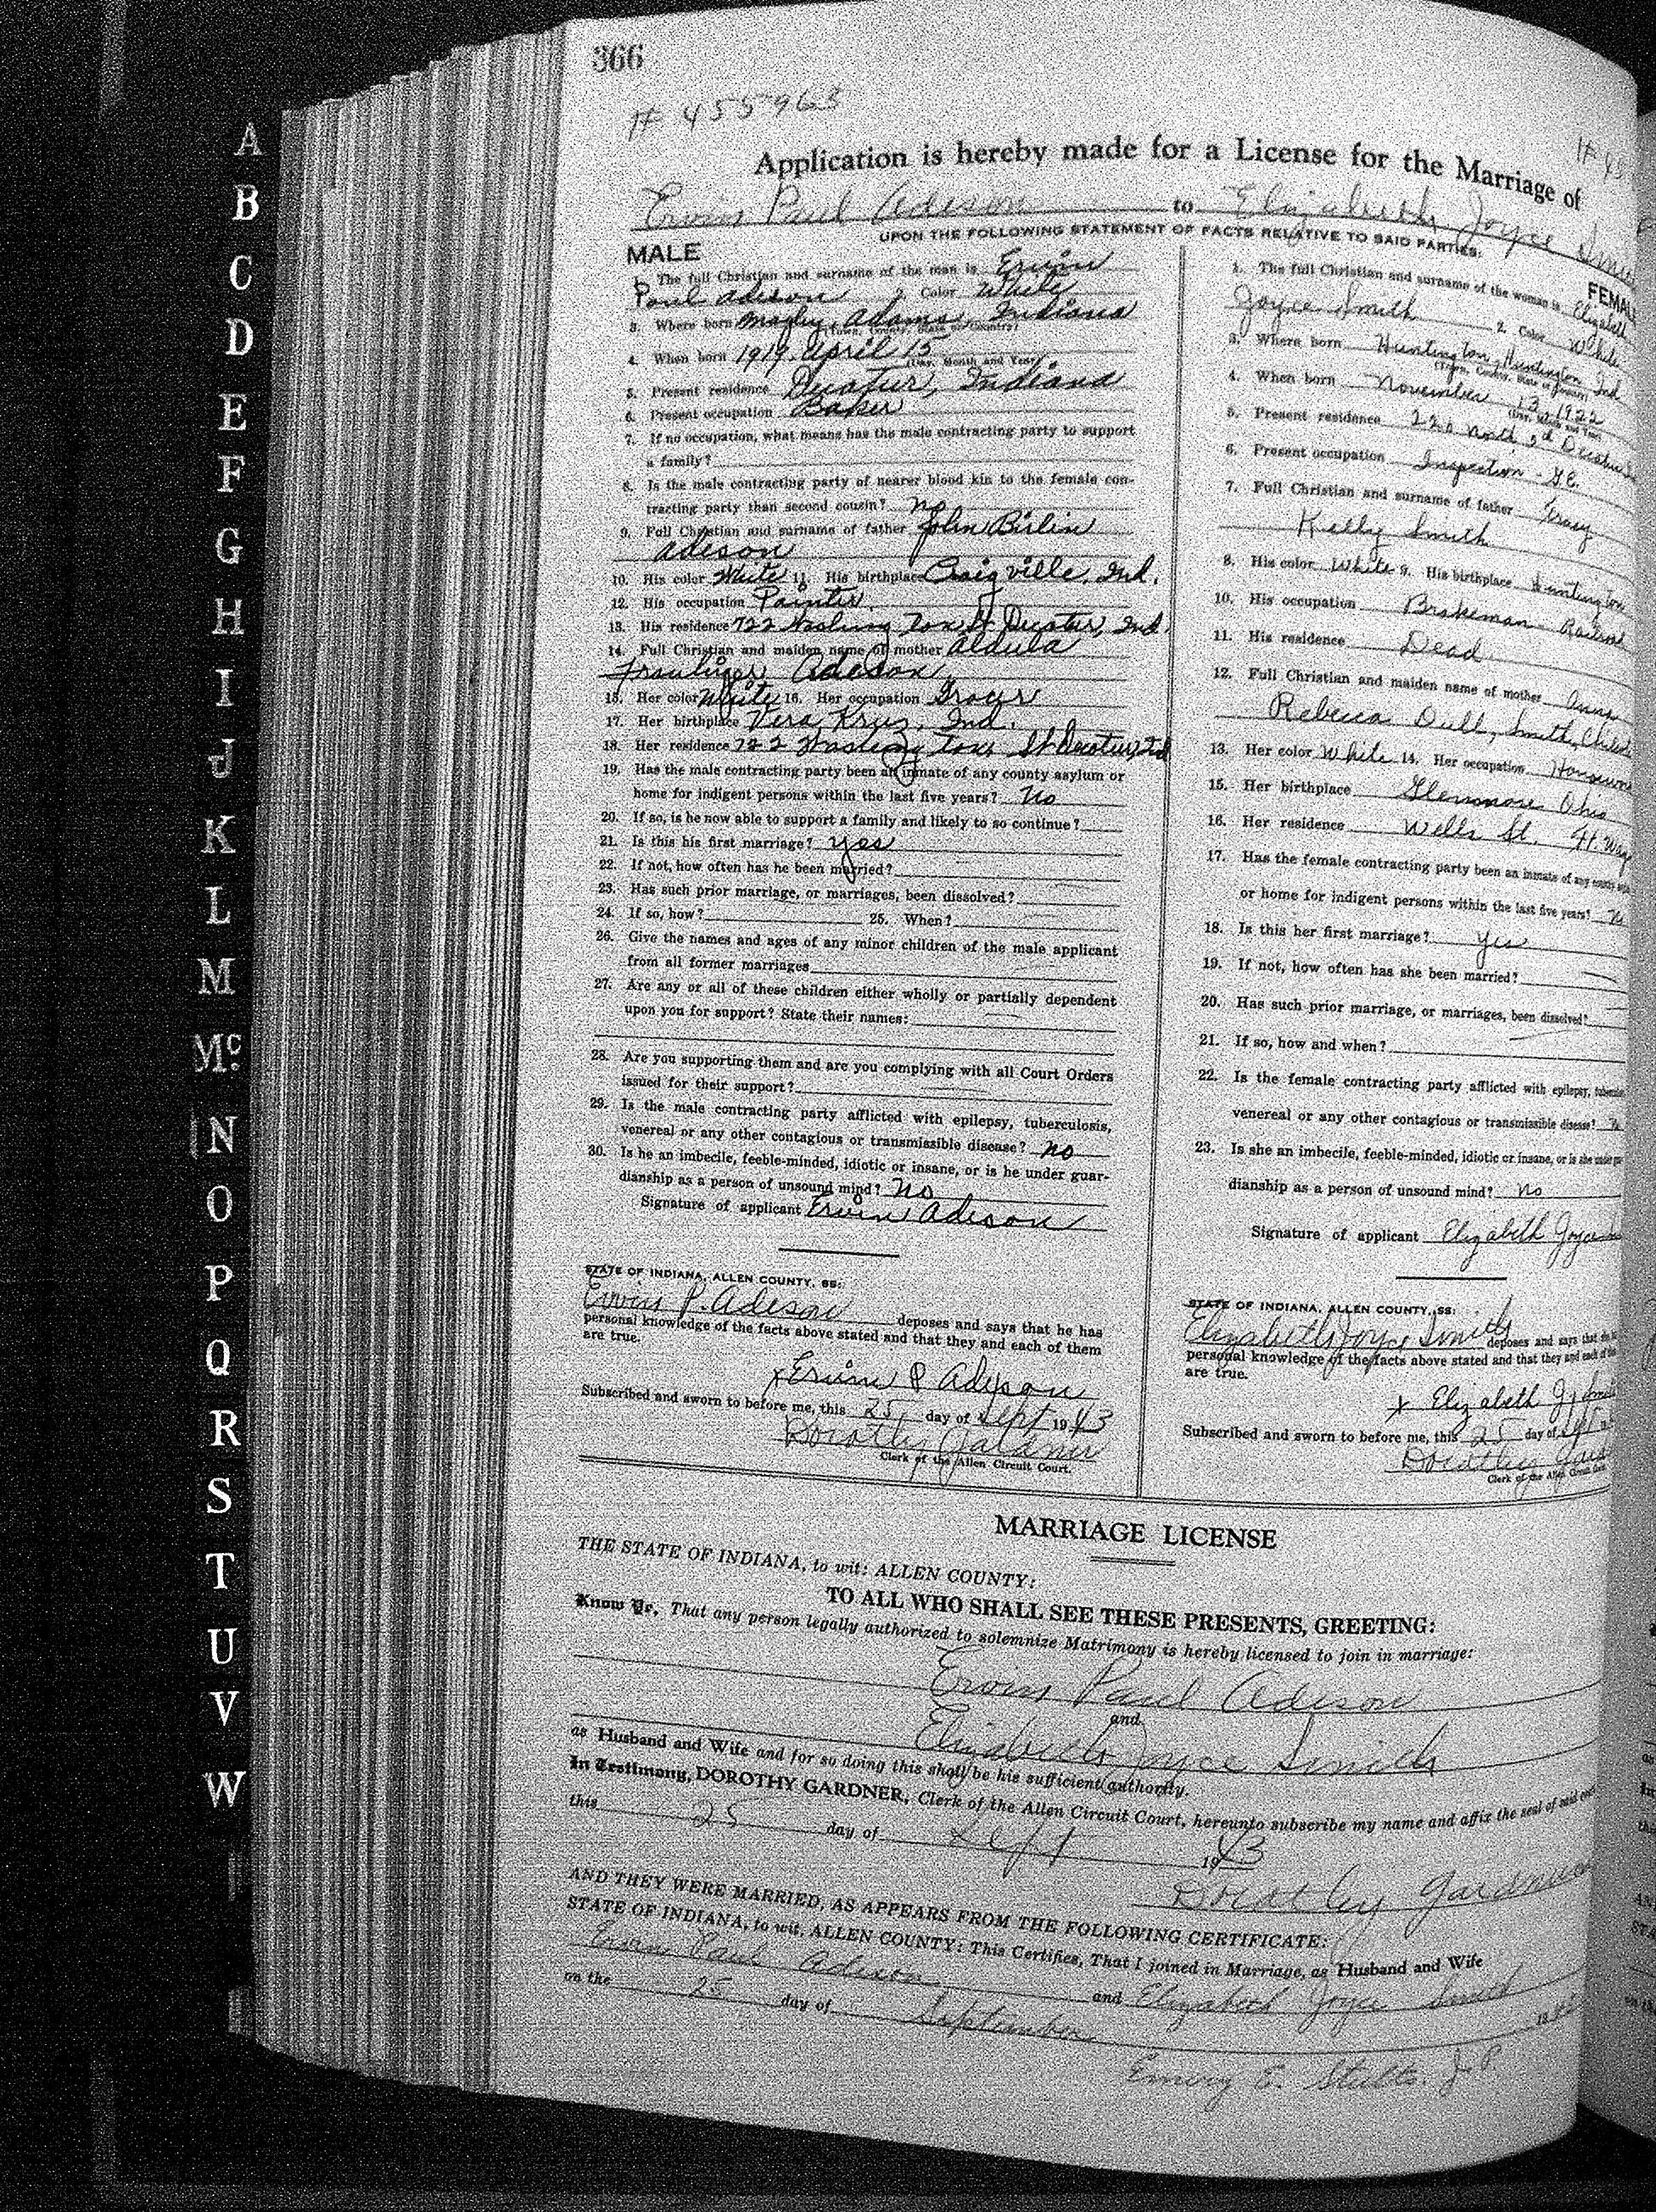 366
# 455963
Application is hereby made for a License for the Marriage of
Ervin Paul Adeson to Elizabeth Joyce
UPON THE FOLLOWING STATEMENT OF FACTS RELATIVE TO SAID PARTIES:
MALE
1. The full Christian and surname of the man is Ervin
Paul Adeson 2. Color White
3. Where born Magley, Adams, Indiana
(Town, County, State or Country)
4. When born 1919. April 15
(Day, Month and Year)
5. Present residence Decatur, Indiana
6. Present occupation Baker
7. If no occupation, what means has the male contracting party to support
a family?
8. Is the male contracting party of nearer blood kin to the female con-
tracting party than second cousin? no
9. Full Christian and surname of father John Birlin
Adeson
10. His color White 11. His birthplace Craigville, Ind.
12. His occupation Painter
13. His residence 722 Washington St Decatur, Ind.
14. Full Christian and maiden name of mother Aldula
Adeson
15. Her color White 16. Her occupation
17. Her birthplace Vera Kruz, Ind.
18. Her residence 722 Washington St Decatur, Ind
19. Has the male contracting party been an inmate of any county asylum or
home for indigent persons within the last five years? No
20. If so, is he now able to support a family and likely to so continue?
21. Is this his first marriage? yes
22. If not, how often has he been married?
23. Has such prior marriage, or marriages, been dissolved?
24. If so, how? 25. When?
26. Give the names and ages of any minor children of the male applicant
from all former marriages
27. Are any or all of these children either wholly or partially dependent
upon you for support? State their names:
28. Are you supporting them and are you complying with all Court Orders
issued for their support?
29. Is the male contracting party afflicted with epilepsy, tuberculosis,
venereal or any other contagious or transmissible disease? no
30. Is he an imbecile, feeble-minded, idiotic or insane, or is he under guar-
dianship as a person of unsound mind? No
Signature of applicant Ervin Adeson
STATE OF INDIANA, ALLEN COUNTY, SS:
Ervin P. Adeson deposes and says that he has
personal knowledge of the facts above stated and that they and each of them
are true.
x Ervin P Adyson
Subscribed and sworn to before me, this 25 day of Sept 1943
Dorothy Gardner
Clerk of the Allen Circuit Court.
1. The full Christian and surname of the woman is Elizabeth
Joyce Smith 2. Color White
3. Where born Huntington, Huntington Ind
(Town, County, State or Country)
4. When born November 13, 1922
(Day, Month and Year)
5. Present residence 220 North 3d
6. Present occupation Inspection - G.E.
7. Full Christian and surname of father
Kelly Smith
8. His color White 9. His birthplace Huntington
10. His occupation Brakeman - Railroad
11. His residence Dead
12. Full Christian and maiden name of mother Anna
Rebecca Dull, Smith,
13. Her color White 14. Her occupation
15. Her birthplace Glenmore Ohio
16. Her residence Wells St.
17. Has the female contracting party been an inmate of any county
or home for indigent persons within the last five years?
18. Is this her first marriage? yes
19. If not, how often has she been married?
20. Has such prior marriage, or marriages, been dissolved?
21. If so, how and when?
22. Is the female contracting party afflicted with epilepsy,
venereal or any other contagious or transmissible disease?
23. Is she an imbecile, feeble-minded, idiotic or insane, or is she under
dianship as a person of unsound mind? No
Signature of applicant Elizabeth Joyce
STATE OF INDIANA, ALLEN COUNTY, SS:
Elizabeth Joyce Smith deposes and says that
personal knowledge of the facts above stated and that they and each of
are true.
x Elizabeth
Subscribed and sworn to before me, this 25 day of Sept
Dorothy
Clerk of the Allen Circuit
MARRIAGE LICENSE
THE STATE OF INDIANA, to wit: ALLEN COUNTY:
TO ALL WHO SHALL SEE THESE PRESENTS, GREETING:
Know Ye, That any person legally authorized to solemnize Matrimony is hereby licensed to join in marriage:
Ervin Paul Adeson
and
Elizabeth Joyce Smith
as Husband and Wife and for so doing this shall be his sufficient authority.
In Testimony, DOROTHY GARDNER, Clerk of the Allen Circuit Court, hereunto subscribe my name and affix the seal of said
this 25 day of Sept 1943
Dorothy Gardner
AND THEY WERE MARRIED, AS APPEARS FROM THE FOLLOWING CERTIFICATE:
STATE OF INDIANA, to wit, ALLEN COUNTY: This Certifies, That I joined in Marriage, as Husband and Wife
Ervin Paul Adeson and Elizabeth Joyce Smith
on the 25 day of September
Emery E. Stults. J.P.
A
B
C
D
E
F
G
H
I
J
K
L
M
Mc
N
O
P
Q
R
S
T
U
V
W